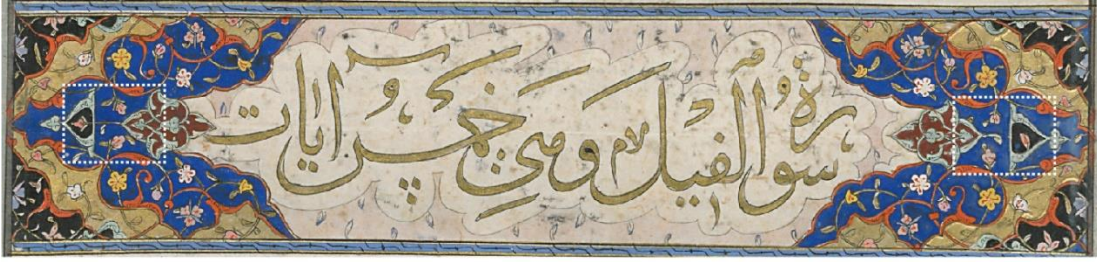 سورة الفيل وهي خمس ايات